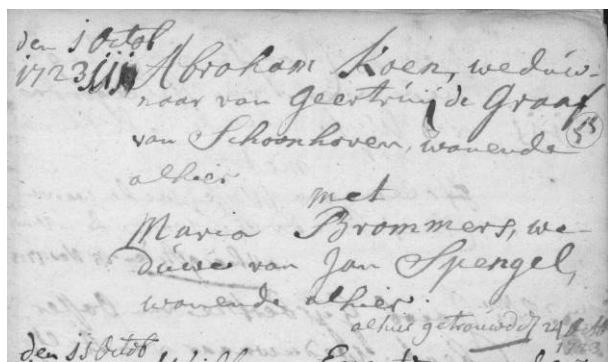 den 1 Octob
1723 Abraham Koen, weduw-
naar van Geertruij de Graaf
van Schoonhoven, wonende
alhier
met
Maria Brommers, we-
duwe van Jan Spengel,
wonende alhier.
alhier getrouwd 24 Octob
1723
den 15 Octob